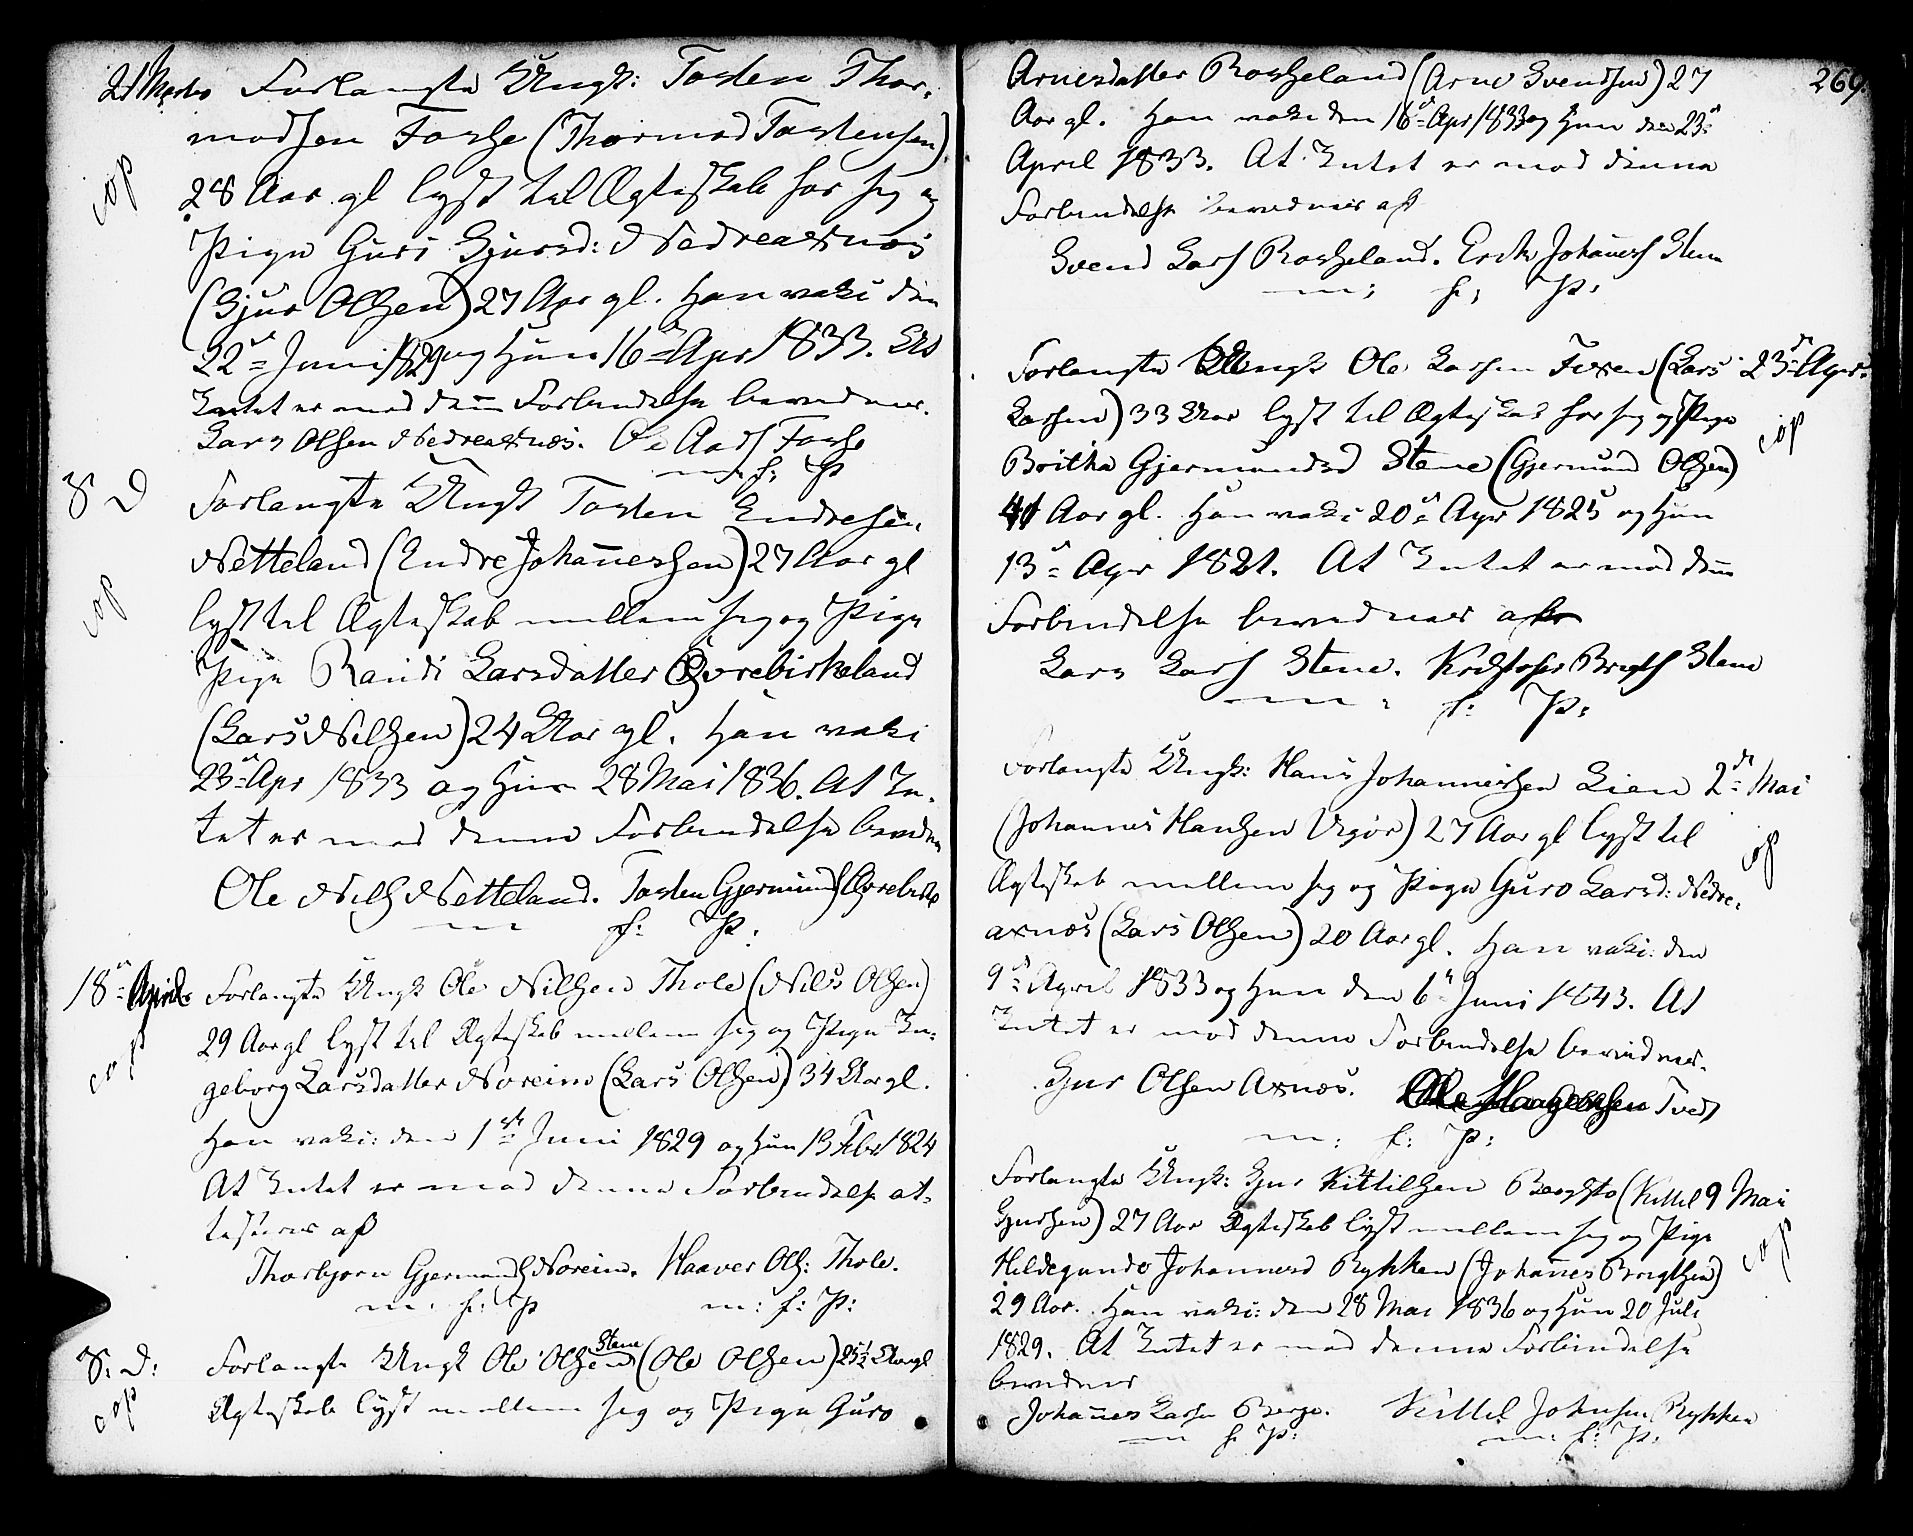 21 Martii Forlangte Ungk: Torsten Thor-
modsen Fosse (Thormod Torstensen)
cop
28 Aar gl lyst til Ægteskab for sig og
Pige Guri Gjursd: Nedreaxnæs
(Gjur Olsen) 27 Aar gl. Han vaki den
22de Juni 1829 og Hun 16de Apr 1833. At
Intet er mod denne Forbindelse bevidnes.
Lars Olsen Nedreaxnæs. Ole Fosse
m. f: P
S. D Forlangte Ungk Torsten Endresen
Netteland (Endre Johannessen) 27 Aar gl
cop
lyst til Ægteskab mellem sig og Pige
Pige Randi Larsdatter Øvrebirkeland
(Lars Nilsen) 24 Aar gl. Han vaki
23de Apr 1833 og Hun 28 Mai 1836. At In-
tet er mod denne Forbindelse bevidn
Ole Nils Netteland. Torsten Gjermunds Øvrebirk
m f: P:
18de April Forlangte Ungk Ole Nilsen Thole (Nils Olsen)
cop
29 Aar gl lyst til Ægteskab mellem sig og Pige In-
geborg Larsdatter Noreim (Lars Olsen) 34 Aar gl.
Han vaki: den 1ste Juni 1829 og Hun 13 Febr 1824
At Intet er mod denne Forbindelse at-
testeres af
Thorbjorn Gjermunds Noreim. Haaver Ols: Thole.
m: f: P m: f: P:
S: D: Forlangte Ungk Ole Olsen Stene (Ole Olsen) 25½ Aar gl
cop
Ægteskab lyst mellem sig og Pige Guro
269.
Arnesdatter Rosseland (Arne Svendsen) 27
Aar gl. Han vaki den 16de Apr 1833 og Hun den 23de
April 1833. At Intet er mod denne
Forbindelse bevidnes af
Svend Lars Rosseland. Erik Johannes Stene
m; f; P:
Forlangte Ungk Ole Larsen Fixen (Lars 23de Apr:
Larsen) 33 Aar lyst til Ægteskab for sig og Pige
cop
Britha Gjermundsd Stene (Gjermund Olsen)
41 Aar gl. Han vaki 20de Apr 1825 og Hun
13de Apr 1821. At Intet er mod denne
Forbindelse bevidnes af
Lars Lars Stene. Kristofer Brygts Stene
m: f: P:
Forlangte Ungk: Hans Johannessen Lien 2de Mai
(Johannes Hansen Vigør) 27 Aar gl lyst til
cop
Ægteskab mellem sig og Pige Guro Larsd: Nedre-
axnæs (Lars Olsen) 20 Aar gl. Han vaki: den
9de April 1833 og Hun den 6te Juni 1843. At
Intet er mod denne Forbindelse bevidnes.
Gjur Olsen Axnæs. Tveds
m: f: P:
Forlangte Ungk: Gjur Kittilsen Bergsto (Kittil 9 Mai
Gjursen) 27 Aar Ægteskab lyst mellem sig og Pige
cop
Hildegunde Johannesd Rykken (Johannes Brygtsen)
29 Aar. Han vaki: den 28 Mai 1836 og Hun 20 Juli
1829. At Intet er mod denne Forbindelse
bevidnes
Johannes Larsen Berge. Kittil Johnsen Rykken
m f. P: m: f: P: